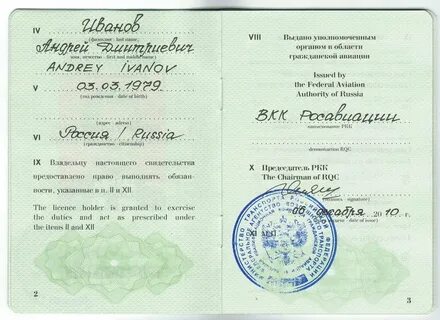 IV Иванов
(фамилия - last name)
Андрей Дмитриевич
имя, отчество - first and middle name
ANDREY IVANOV
V 03.03.1979
(год рождения - date of birth)
(адрес - adress)
VI Россия / Russia
(гражданство - citizenship)
IX Владельцу настоящего свидетельства
предоставлено право выполнять обязан-
ности, указанные в п. II и XII
The licence holder is granted to exercise
the duties and act as prescribed under
the items II and XII
2
VIII Выдано уполномоченным
органом в области
гражданской авиации
Issued by
the Federal Aviation
Authority of Russia
ВКК Росавиации
наименование РКК
denomination RQC
X Председатель РКК
The Chairman of RQC
(подпись - signature)
декабря 2010 г.
XI
3